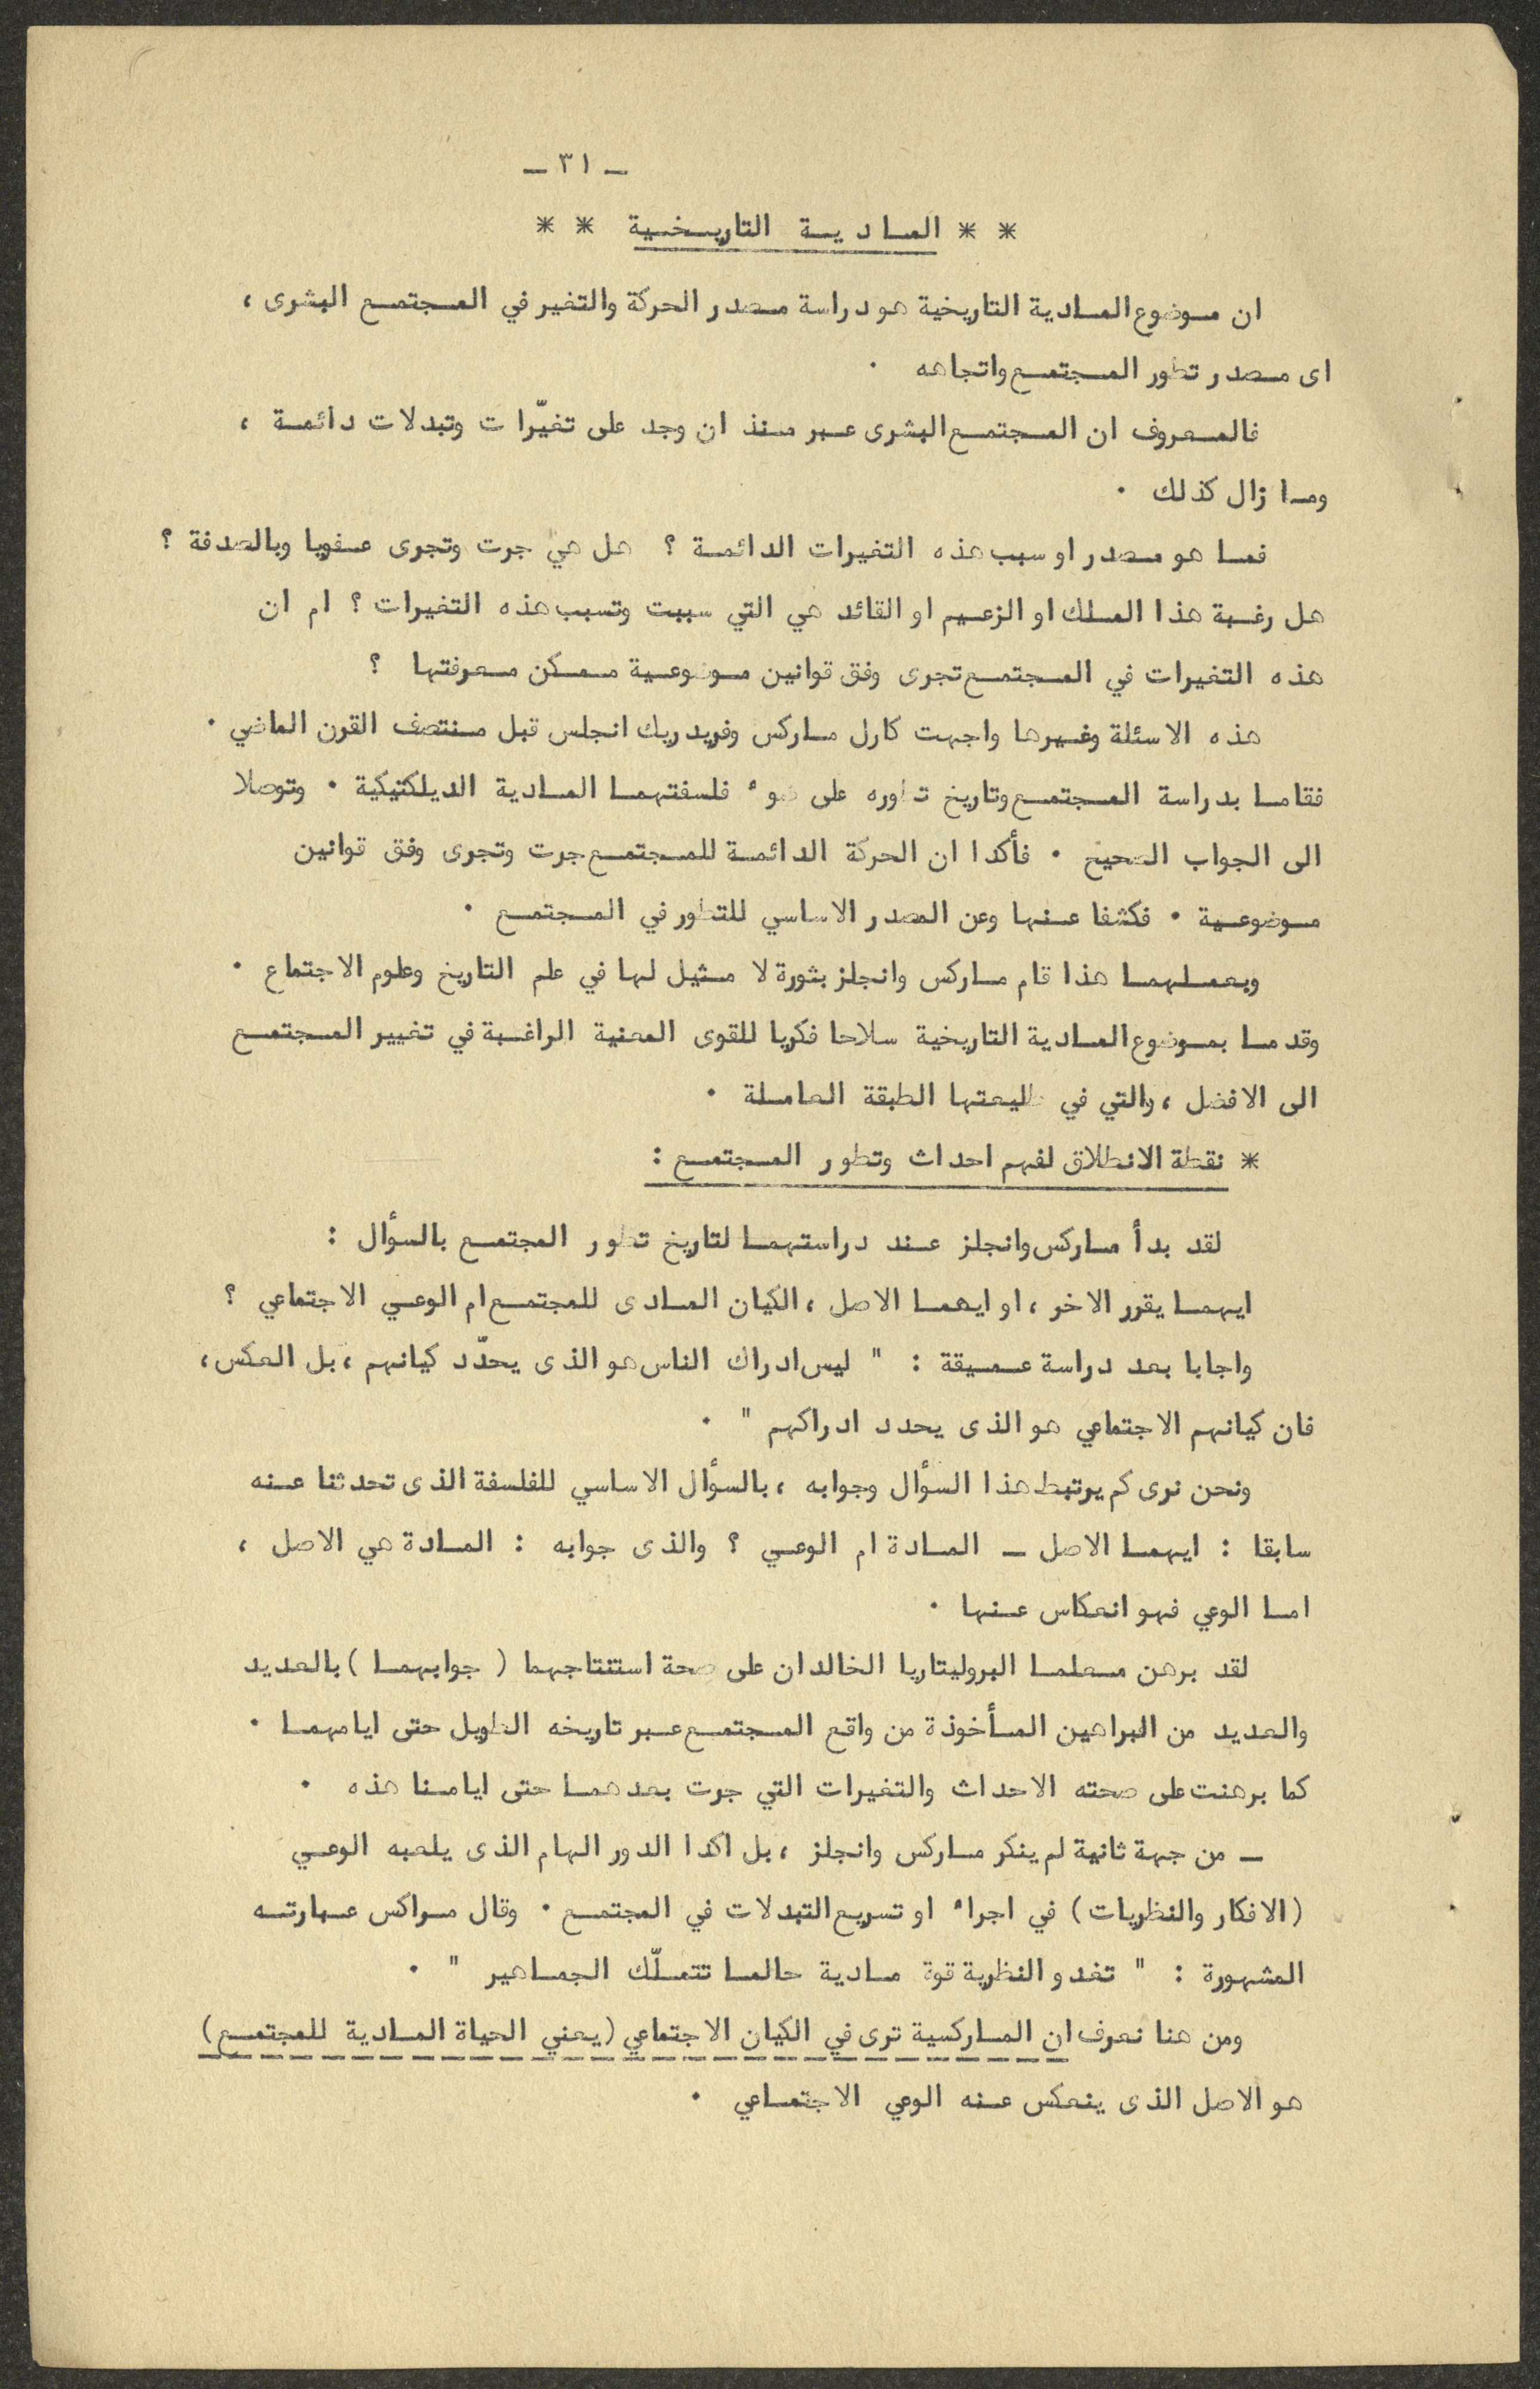 ـ ٣١ ـ
* * المادية التاريخية * *
ان موضوع المادية التاريخية هو دراسة مصدر الحركة والتغير في المجتمع البشرى ،
اى مصدر تطور المجتمع واتجاهه .
فالمعروف ان المجتمع البشرى عبر منذ ان وجد على تغيّرات وتبدلات دائمة ،
وما زال كذلك .
فما هو مصدر او سبب هذه التغيرات الدائمة ؟ هل هي جرت وتجرى عفويا وبالصدفة ؟
هل رغبة هذا الملك او الزعيم او القائد هي التي سببت وتسبب هذه التغيرات ؟ ام ان
هذه التغيرات في المجتمع تجرى وفق قوانين موضوعية ممكن معرفتها ؟
هذه الاسئلة وغيرها واجهت كارل ماركس وفريدريك انجلس قبل منتصف القرن الماضي .
فقاما بدراسة المجتمع وتاريخ تطوره على ضوء فلسفتهما المادية الديلكتيكية . وتوصلا
الى الجواب الصحيح . فأكدا ان الحركة الدائمة للمجتمع جرت وتجرى وفق قوانين
موضوعية . فكشفا عنها وعن المصدر الاساسي للتطور في المجتمع .
وبعملهما هذا قام ماركس وانجلز بثورة لا مثيل لها في علم التاريخ وعلوم الاجتماع .
وقدما بموضوع المادية التاريخية سلاحا فكريا للقوى المعنية الراغبة في تغيير المجتمع
الى الافضل ، والتي في طليعتها الطبقة العاملة .
* نقطة الانطلاق لفهم احداث وتطور المجتمع :
لقد بدأ ماركس وانجلز عند دراستهما لتاريخ تطور المجتمع بالسؤال :
ايهما يقرر الاخر ، او ايهما الاصل ، الكيان المادى للمجتمع ام الوعي الاجتماعي ؟
واجابا بعد دراسة عميقة : " ليس ادراك الناس هو الذى يحدّد كيانهم ، بل العكس ،
فان كيانهم الاجتماعي هو الذى يحدد ادراكهم " .
ونحن نرى كم يرتبط هذا السؤال وجوابه ، بالسؤال الاساسي للفلسفة الذى تحدثنا عنه
سابقا : ايهما الاصل ـ المادة ام الوعي ؟ والذى جوابه : المادة هي الاصل ،
اما الوعي فهو انعكاس عنها .
لقد برهن معلما البروليتاريا الخالدان على صحة استنتاجهما ( جوابهما ) بالعديد
والعديد من البراهين المأخوذة من واقع المجتمع عبر تاريخه الطويل حتى ايامهما .
كما برهنت على صحته الاحداث والتغيرات التي جرت بعدهما حتى ايامنا هذه .
ـ من جهة ثانية لم ينكر ماركس وانجلز ، بل اكدا الدور الهام الذى يلعبه الوعي
(الافكار والنظريات) في اجراء او تسريع التبدلات في المجتمع . وقال مراكس عبارته
المشهورة : " تغدو النظرية قوة مادية حالما تتملّك الجماهير " .
ومن هنا نعرف ان الماركسية ترى في الكيان الاجتماعي (يعني الحياة المادية للمجتمع)
هو الاصل الذى ينعكس عنه الوعي الاجتماعي .